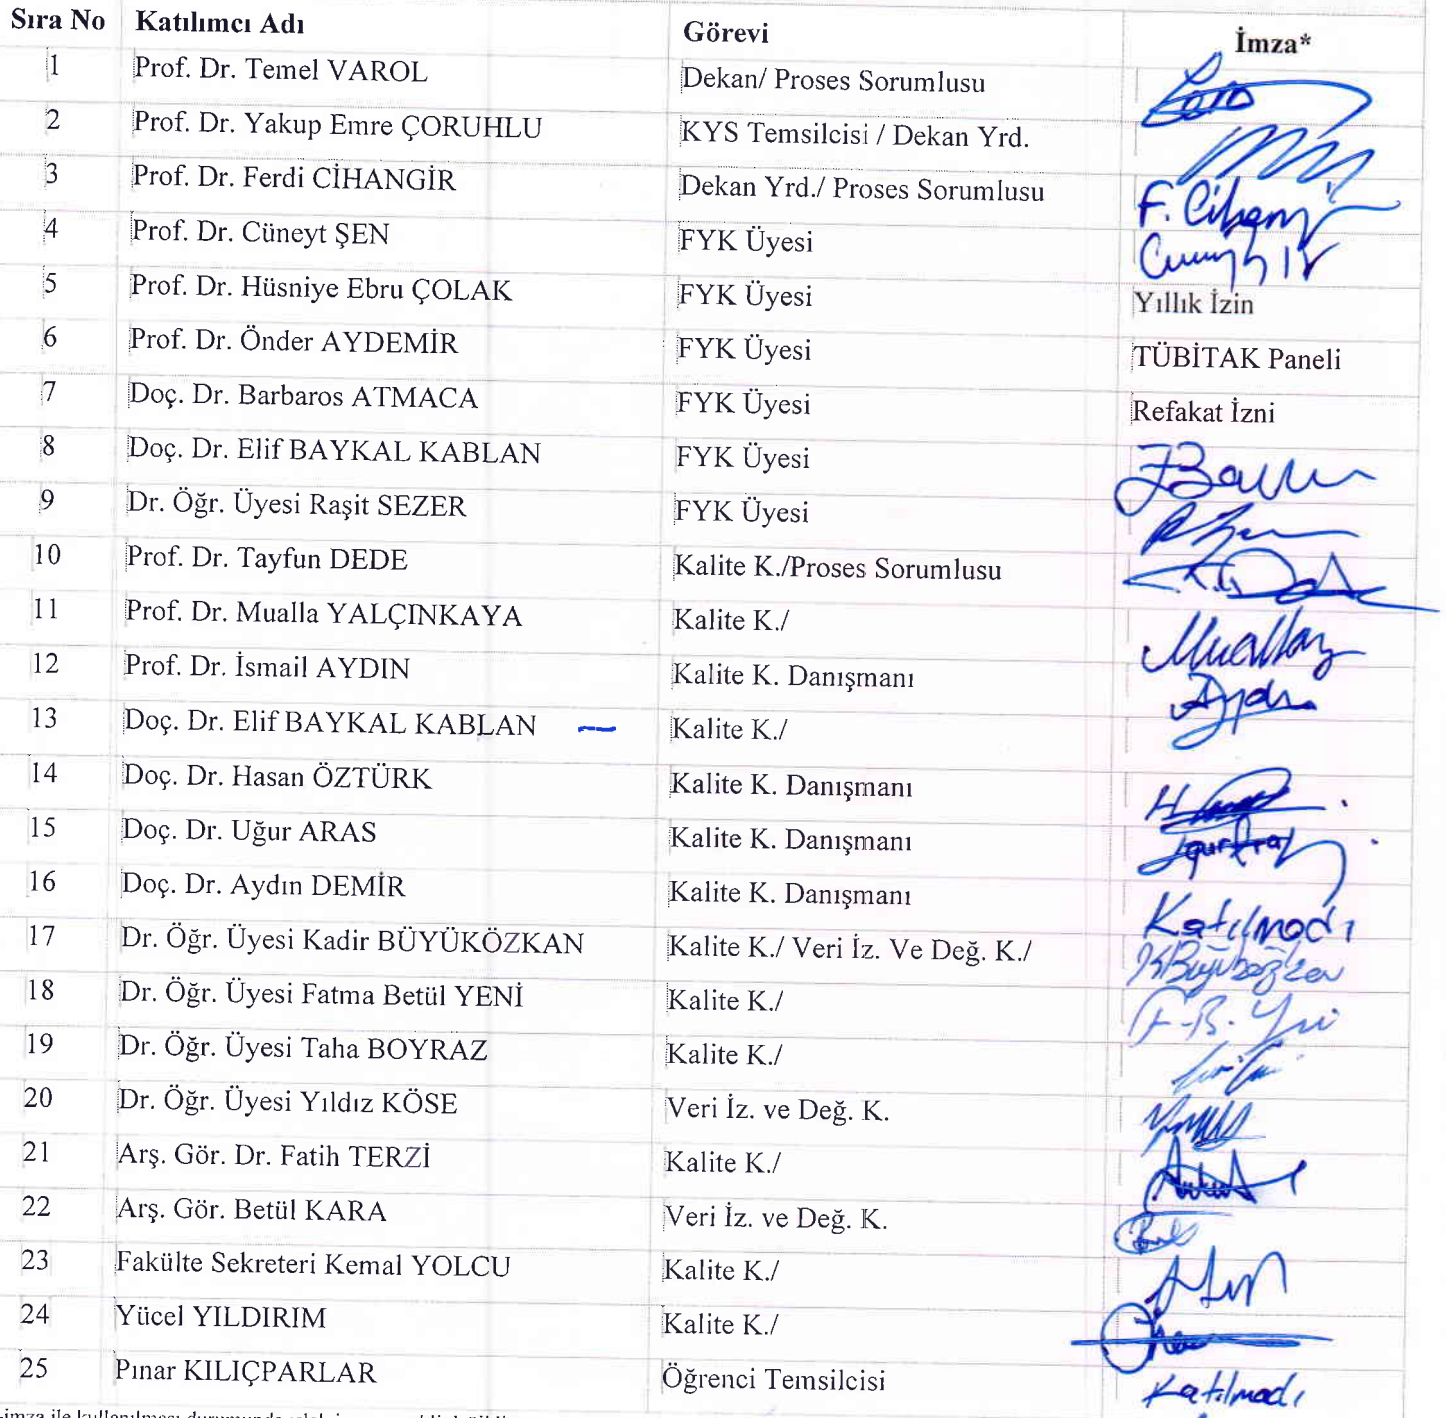 Sıra No Katılımcı Adı Görevi İmza*
1 Prof. Dr. Temel VAROL Dekan/ Proses Sorumlusu
2 Prof. Dr. Yakup Emre ÇORUHLU KYS Temsilcisi / Dekan Yrd.
3 Prof. Dr. Ferdi CİHANGİR Dekan Yrd./ Proses Sorumlusu F. Cihangir
4 Prof. Dr. Cüneyt ŞEN FYK Üyesi
5 Prof. Dr. Hüsniye Ebru ÇOLAK FYK Üyesi Yıllık İzin
6 Prof. Dr. Önder AYDEMİR FYK Üyesi TÜBİTAK Paneli
7 Doç. Dr. Barbaros ATMACA FYK Üyesi Refakat İzni
8 Doç. Dr. Elif BAYKAL KABLAN FYK Üyesi
9 Dr. Öğr. Üyesi Raşit SEZER FYK Üyesi
10 Prof. Dr. Tayfun DEDE Kalite K./Proses Sorumlusu
11 Prof. Dr. Mualla YALÇINKAYA Kalite K./
12 Prof. Dr. İsmail AYDIN Kalite K. Danışmanı
13 Doç. Dr. Elif BAYKAL KABLAN — Kalite K./
14 Doç. Dr. Hasan ÖZTÜRK Kalite K. Danışmanı
15 Doç. Dr. Uğur ARAS Kalite K. Danışmanı
16 Doç. Dr. Aydın DEMİR Kalite K. Danışmanı Katılmadı
17 Dr. Öğr. Üyesi Kadir BÜYÜKÖZKAN Kalite K./ Veri İz. Ve Değ. K./
18 Dr. Öğr. Üyesi Fatma Betül YENİ Kalite K./
19 Dr. Öğr. Üyesi Taha BOYRAZ Kalite K./
20 Dr. Öğr. Üyesi Yıldız KÖSE Veri İz. ve Değ. K.
21 Arş. Gör. Dr. Fatih TERZİ Kalite K./
22 Arş. Gör. Betül KARA Veri İz. ve Değ. K.
23 Fakülte Sekreteri Kemal YOLCU Kalite K./
24 Yücel YILDIRIM Kalite K./
25 Pınar KILIÇPARLAR Öğrenci Temsilcisi Katılmadı